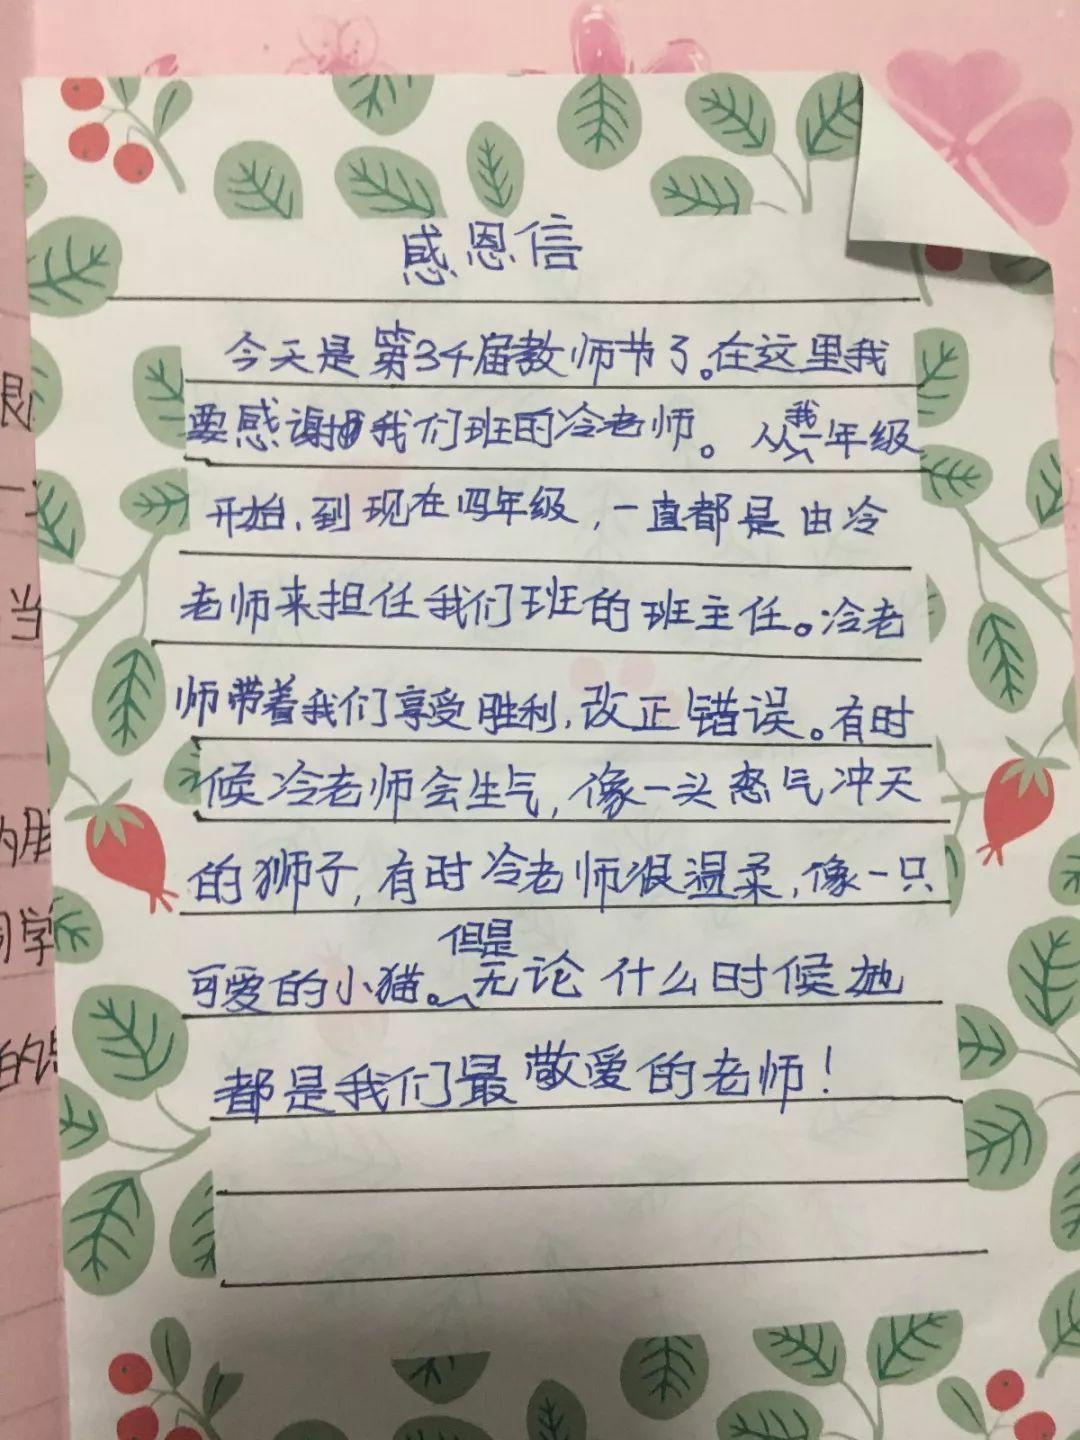 感恩信
今天是第34届教师节了。在这里我
要感谢我们班的冷老师。从我一年级
开始,到现在四年级,一直都是由冷
老师来担任我们班的班主任。冷老
师带着我们享受胜利,改正错误。有时
候冷老师会生气,像一头怒气冲天
的狮子,有时冷老师很温柔,像一只
可爱的小猫。但是无论什么时候她
都是我们最敬爱的老师!
当
同学